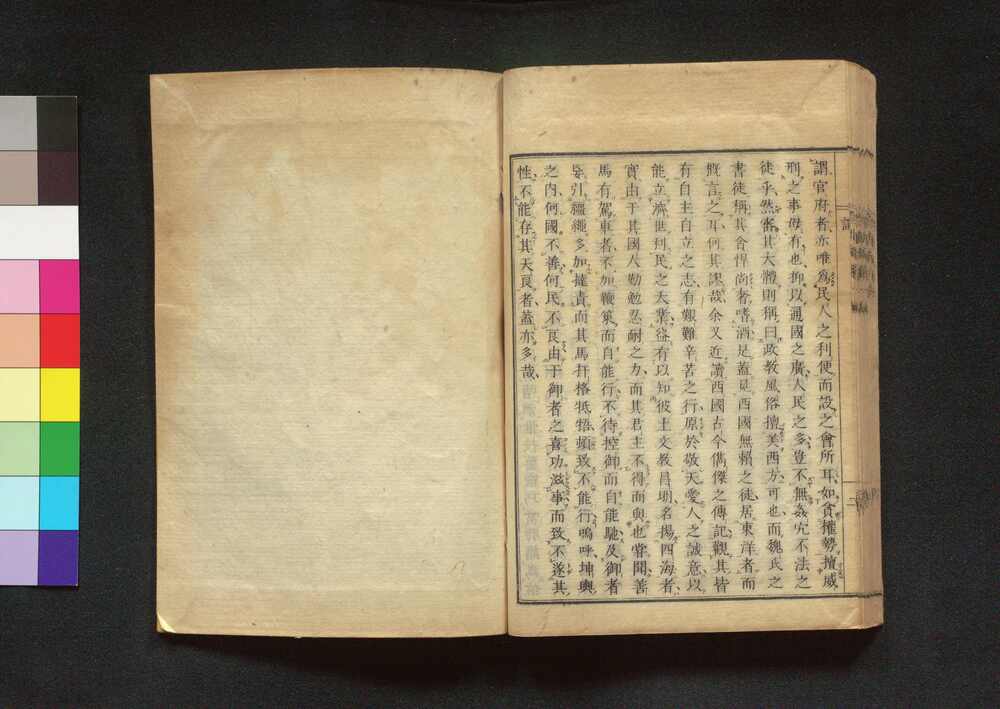 謂官府者亦唯爲民人之利便而設之會所耳如貪權勢擅威
刑之事毋有也抑以通國之廣人民之多豈不無姦宄不法之
徒乎然當其大體則稱曰政敎風俗擅美西方可也而魏氏之
書徒稱其貪悍尚奢嗜酒是蓋見西國無賴之徒居東洋者而
概言之耳何其謬哉余又近讀西國古今儁傑之傳記觀其皆
有自主自立之志有艱難辛苦之行原於敬天愛人之誠意以
能立濟世利民之大業益有以知彼土文敎昌明名揚四海者
實由于其國人勤勉忍耐之力而其君主不得而與也嘗聞善
馬有駕車者不加鞭策而自能行不待控御而自能馳及御者
緊引韁繩多加撻責而其馬扞格牴牾頓致不能行嗚呼坤輿
之内何國不善何民不良由于御者之喜功滋事而致不遂其
性不能存其天良者蓋亦多哉